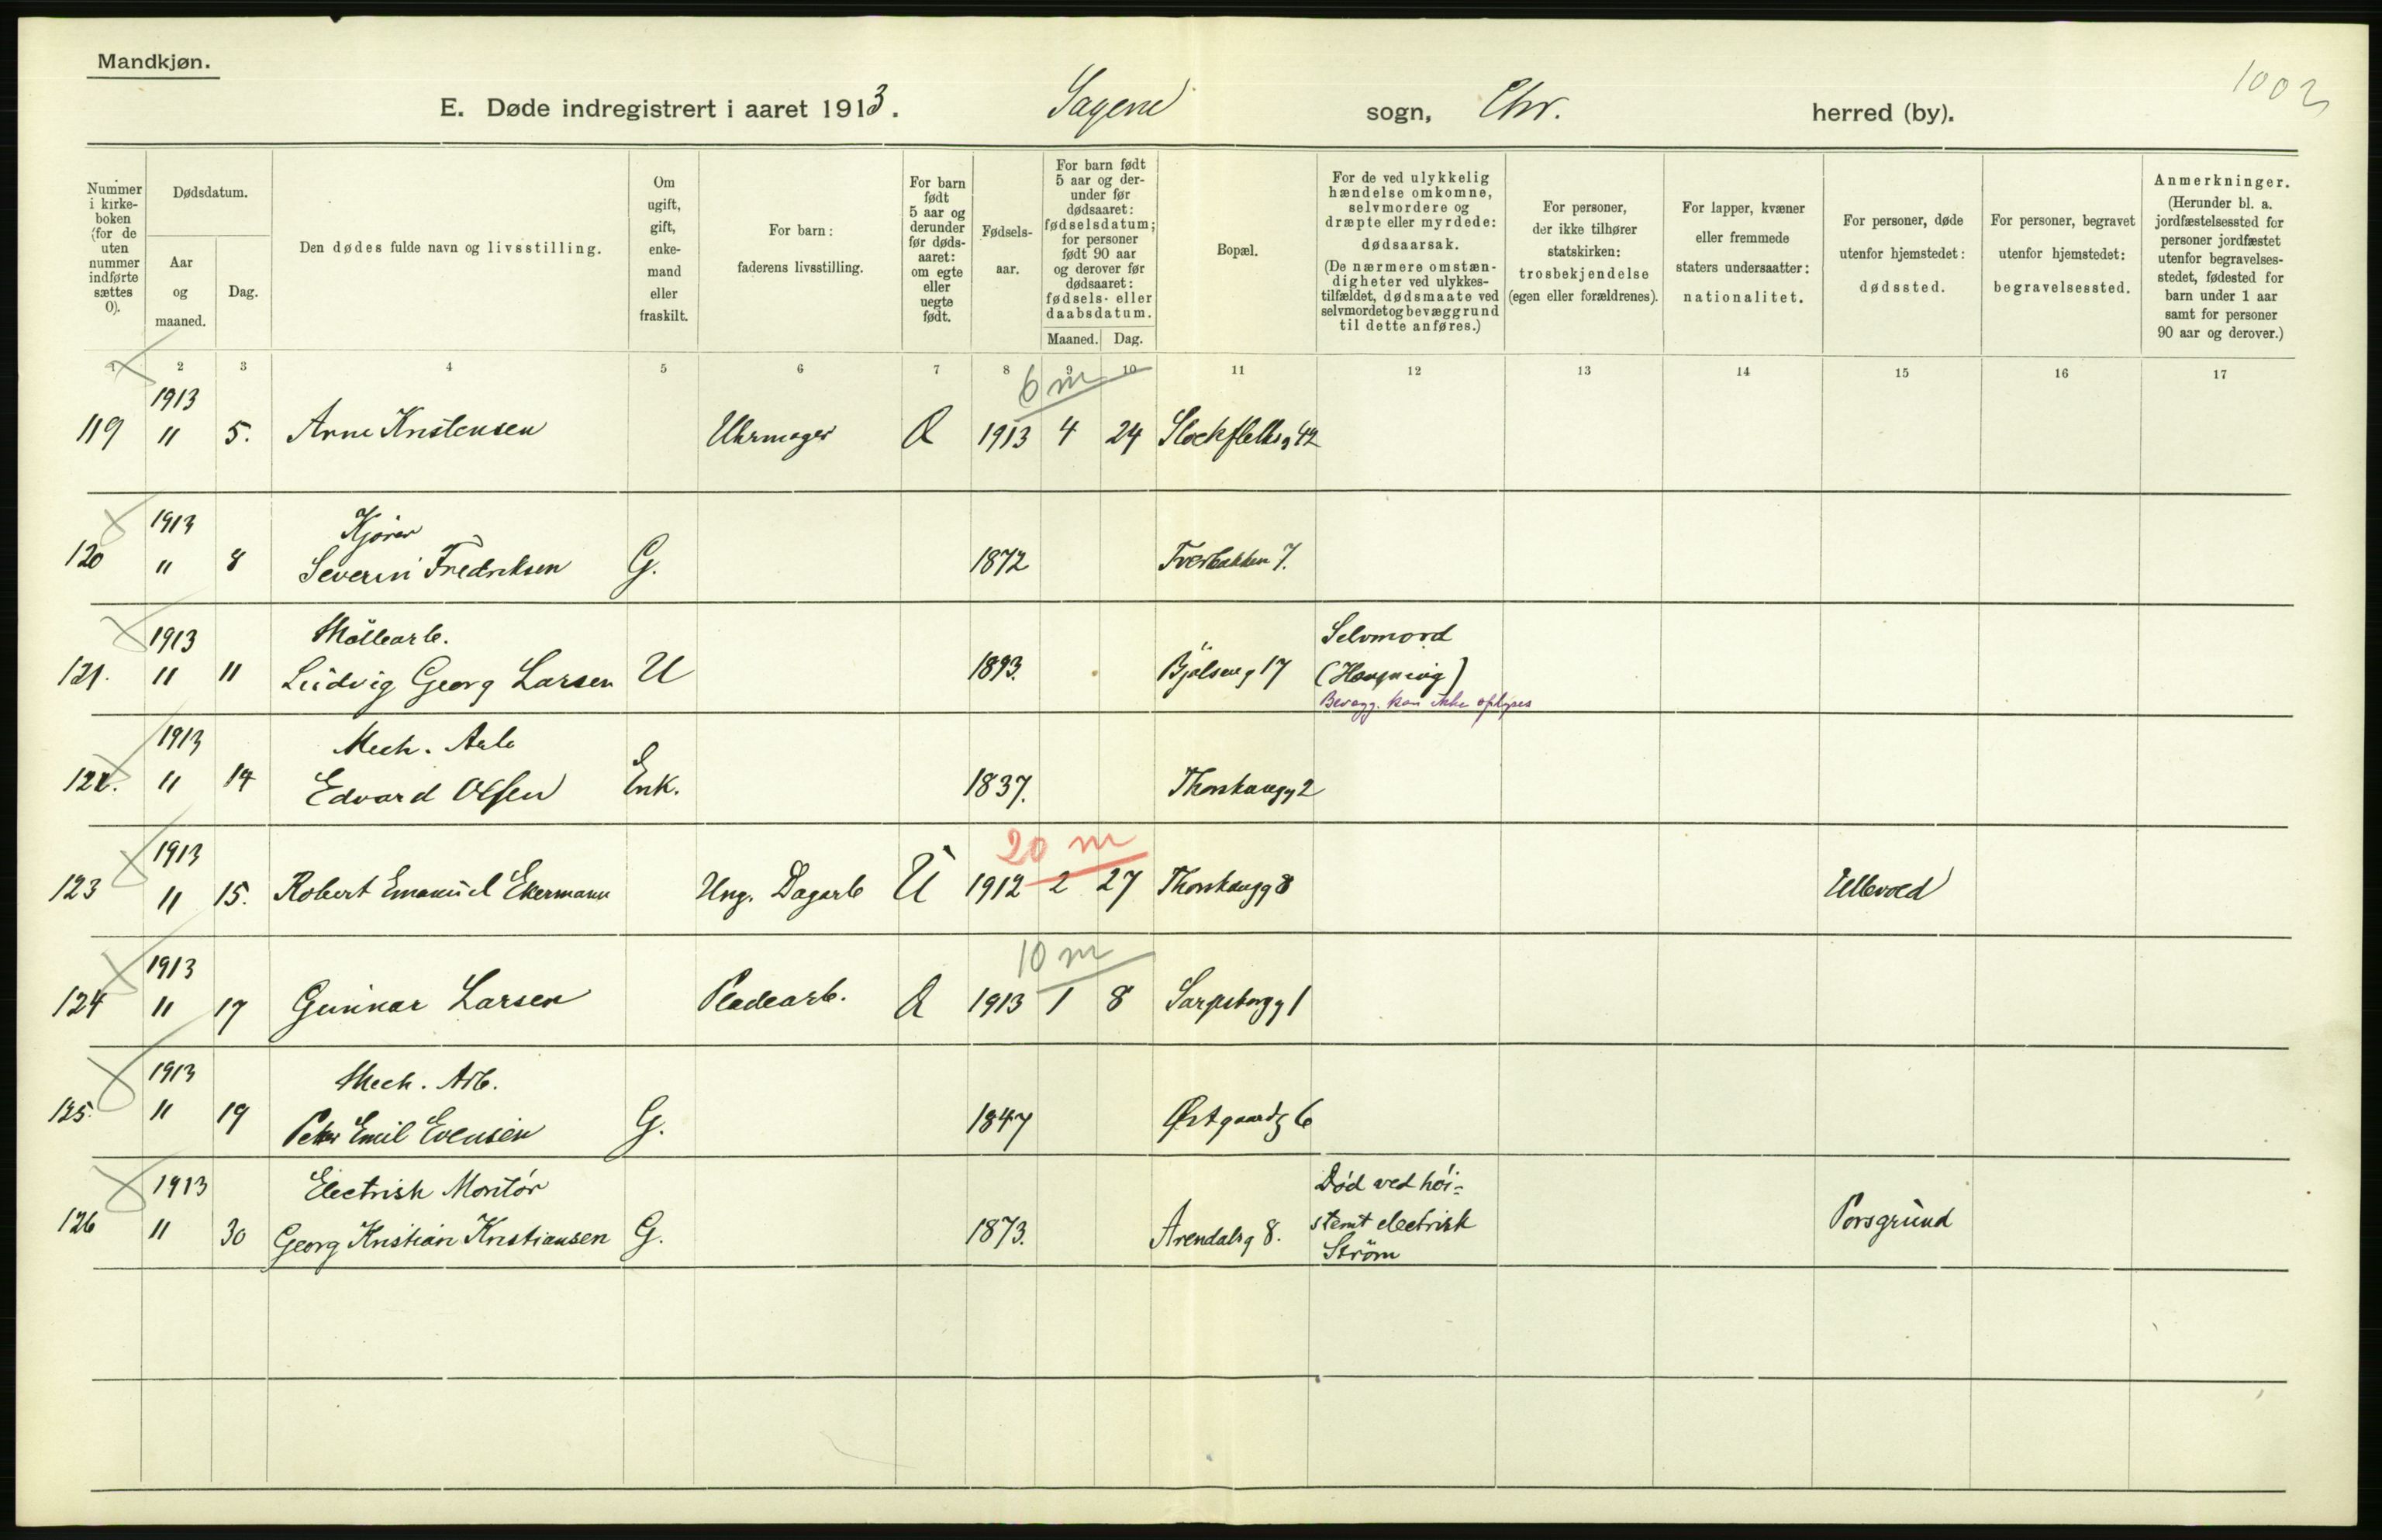 Mandkjøn.
1003
E. Døde indregistrert i aaret 1913. Sagene sogn, Chr. herred (by).
Nummer i kirke-boken (for de uten nummer indførte sættes 0).
Dødsdatum.
Aar og maaned.
Dag.
Den dødes fulde navn og livsstilling.
Om ugift, gift, enke-mand eller fraskilt.
For barn: faderens livsstilling.
For barn født 5 aar og derunder før døds-aaret: om egte eller uegte født.
Fødsels-aar.
For barn født 5 aar og der-under før dødsaaret: fødselsdatum; for personer født 90 aar og derover før dødsaaret: fødsels- eller daabsdatum.
Maaned. Dag.
Bopæl.
For de ved ulykkelig hændelse omkomne, selvmordere og dræpte eller myrdede: dødsaarsak. (De nærmere omstæn-digheter ved ulykkes-tilfældet, dødsmaate ved selvmordet og bevæggrund til dette anføres.)
For personer, der ikke tilhører statskirken: trosbekjendelse (egen eller forældrenes).
For lapper, kvæner eller fremmede staters undersaatter: nationalitet.
For personer, døde utenfor hjemstedet: dødssted.
For personer, begravet utenfor hjemstedet: begravelsessted.
Anmerkninger. (Herunder bl. a. jordfæstelsessted for personer jordfæstet utenfor begravelses-stedet, fødested for barn under 1 aar samt for personer 90 aar og derover.)
1 2 3 4 5 6 7 8 9 10 11 12 13 14 15 16 17
1913 6 m
119 11 5. Arne Kristensen Uhrmager Æ 1913 4 24 Stockflethsg 42
1913 Kjører
120 11 8 Severin Fredriksen G. 1872 Tverbakken 7.
1913 Möllearb. Selvmord
121. 11 11 Ludvig Georg Larsen U 1893. Bjølseng 17 (Hængning)
Bevægg. kan ikke oplyses
1913 Mech. Arb
122. 11 14 Edvard Olsen Enk. 1837. Thorshaugg 2
1913 20 m
123 11 15. Robert Emanuel Ekermann Ung. Dagarb U 1912 2 27 Thorshaugg 8 Ullevold
1913 10 m
124 11 17 Gunnar Larsen Pladearb. Æ 1913 1 8 Sarpsborgg 1
1913 Mech. Arb.
125. 11 19 Peter Emil Evensen G. 1847 Østgaardsg 6
1913 Electrisk Montör Död ved höi-
126 11 30 Georg Kristian Kristiansen G. 1873. Arendalsg 8. stemt electrisk Porsgrund
Ström